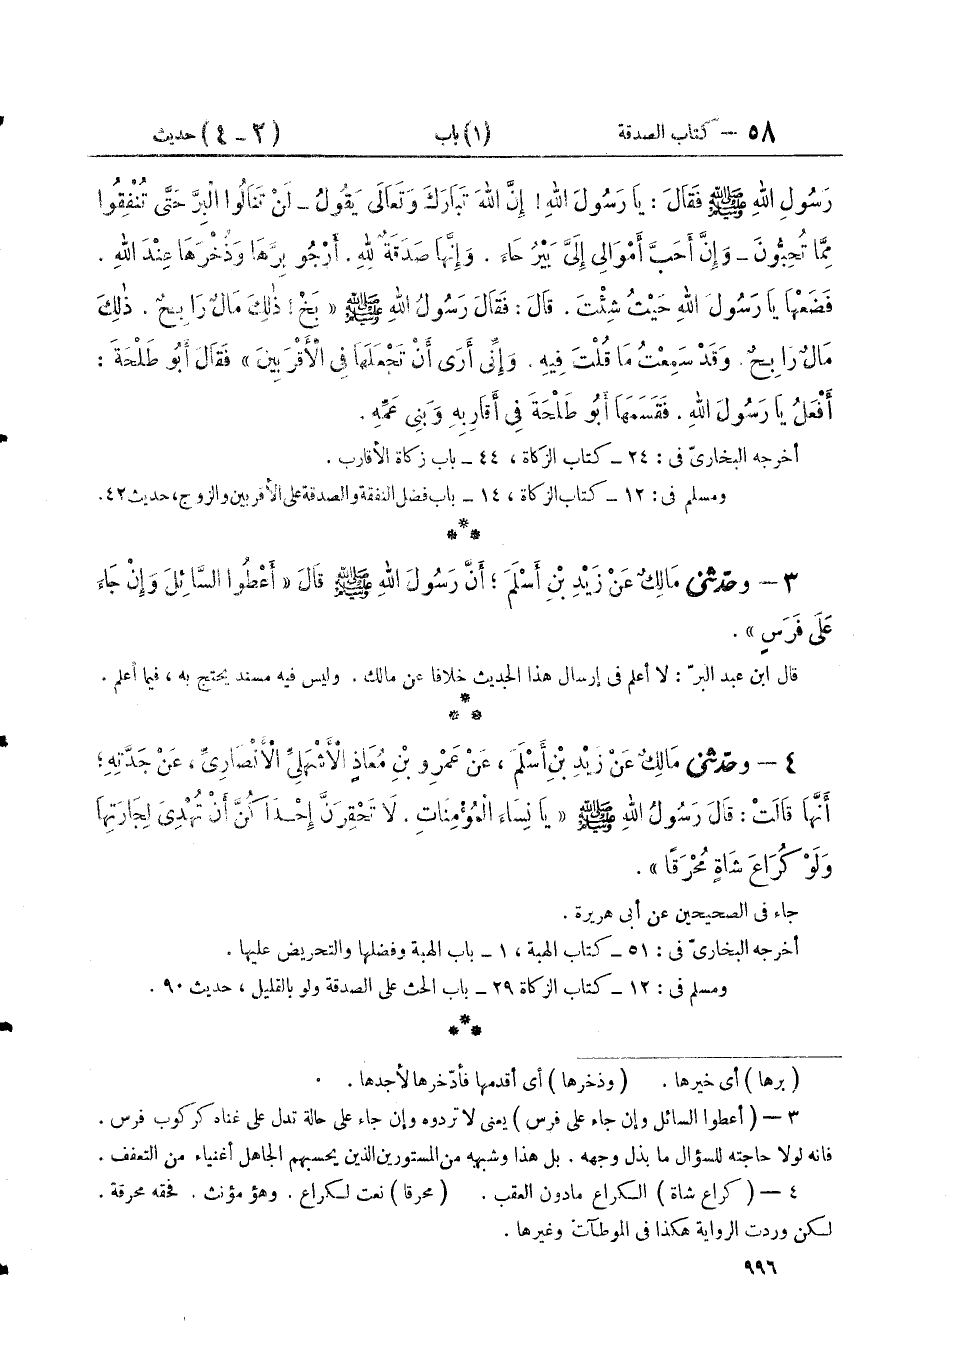 ٥٨ — كتاب الصدقة (١) باب (٣ – ٤) حديث
رَسُولِ اللهِ ﷺ فَقَالَ : يَا رَسُولَ اللهِ ! إِنَّ اللهَ تَبَارَكَ وَتَعَالَى يَقُولُ – لَنْ تَنَالُوا الْبِرَّ حَتَّى تُنْفِقُوا
مِمَّا تُحِبُّونَ – وَإِنَّ أَحَبَّ أَمْوَالِى إِلَىَّ بَيْرُ حَاءَ . وَإِنَّهَا صَدَقَةٌ لِلهِ . أَرْجُو بِرَّهَا وَذُخْرَهَا عِنْدَ اللهِ .
فَضَعْهَا يَا رَسُولَ اللهِ حَيْثُ شِئْتَ . قَالَ : فَقَالَ رَسُولُ اللهِ ﷺ « بَخْ ! ذٰلِكَ مَالٌ رَابِحٌ . ذٰلِكَ
مَالٌ رَابِحٌ . وَقَدْ سَمِعْتُ مَا قُلْتَ فِيهِ . وَإِنِّى أَرَى أَنْ تَجْعَلَهَا فِى الْأَقْرَبِينَ » فَقَالَ أَبُو طَلْحَةَ :
أَفْعَلُ يَا رَسُولَ اللهِ . فَقَسَمَهَا أَبُو طَلْحَةَ فِى أَقَارِبِهِ وَبَنِى عَمِّهِ .
أخرجه البخارىّ فى : ٢٤ – كتاب الزكاة ، ٤٤ – باب زكاة الأقارب .
ومسلم فى : ١٢ – كتاب الزكاة ، ١٤ – باب فضل النفقة والصدقة على الأقربين والزوج، حديث ٤٢.
***
٣ — وحَدَّثَنِى مَالِكٌ عَنْ زَيْدِ بْنِ أَسْلَمَ ؛ أَنَّ رَسُولَ اللهِ ﷺ قَالَ « أَعْطُوا السَّائِلَ وَإِنْ جَاءَ
عَلَى فَرَسٍ » .
قال ابن عبد البرّ : لا أعلم فى إرسال هذا الحديث خلافا عن مالك . وليس فيه مسند يحتج به ، فيما أعلم .
***
٤ — وحَدَّثَنِى مَالِكٌ عَنْ زَيْدِ بْنِ أَسْلَمَ ، عَنْ عَمْرِو بْنِ مُعَاذٍ الْأَشْهَلِىِّ الْأَنْصَارِىِّ ، عَنْ جَدَّتِهِ ؛
أَنَّهَا قَالَتْ : قَالَ رَسُولُ اللهِ ﷺ « يَا نِسَاءَ الْمُؤْمِنَاتِ . لَا تَحْقِرَنَّ إِحْدَاكُنَّ أَنْ تُهْدِىَ لِجَارَتِهَا
وَلَوْ كُرَاعَ شَاةٍ مُحْرَقًا » .
جاء فى الصحيحين عن أبى هريرة .
أخرجه البخارىّ فى : ٥١ – كتاب الهبة ، ١ – باب الهبة وفضلها والتحريض عليها .
ومسلم فى : ١٢ – كتاب الزكاة ٢٩ – باب الحث على الصدقة ولو بالقليل ، حديث ٩٠ .
***
( برها ) أى خيرها . ( وذخرها ) أى أقدمها فأدّخرها لأجدها .
٣ — ( أعطوا السائل وإن جاء على فرس ) يعنى لا تردوه وإن جاء على حالة تدل على غناه كركوب فرس .
فانه لولا حاجته للسؤال ما بذل وجهه . بل هذا وشبهه من المستورين الذين يحسبهم الجاهل أغنياء من التعفف .
٤ — ( كراع شاة ) الكراع مادون العقب . ( محرقا ) نعت لكراع . وهو مؤنث . فحقه محرقة .
لكن وردت الرواية هكذا فى الموطآت وغيرها .
٩٩٦